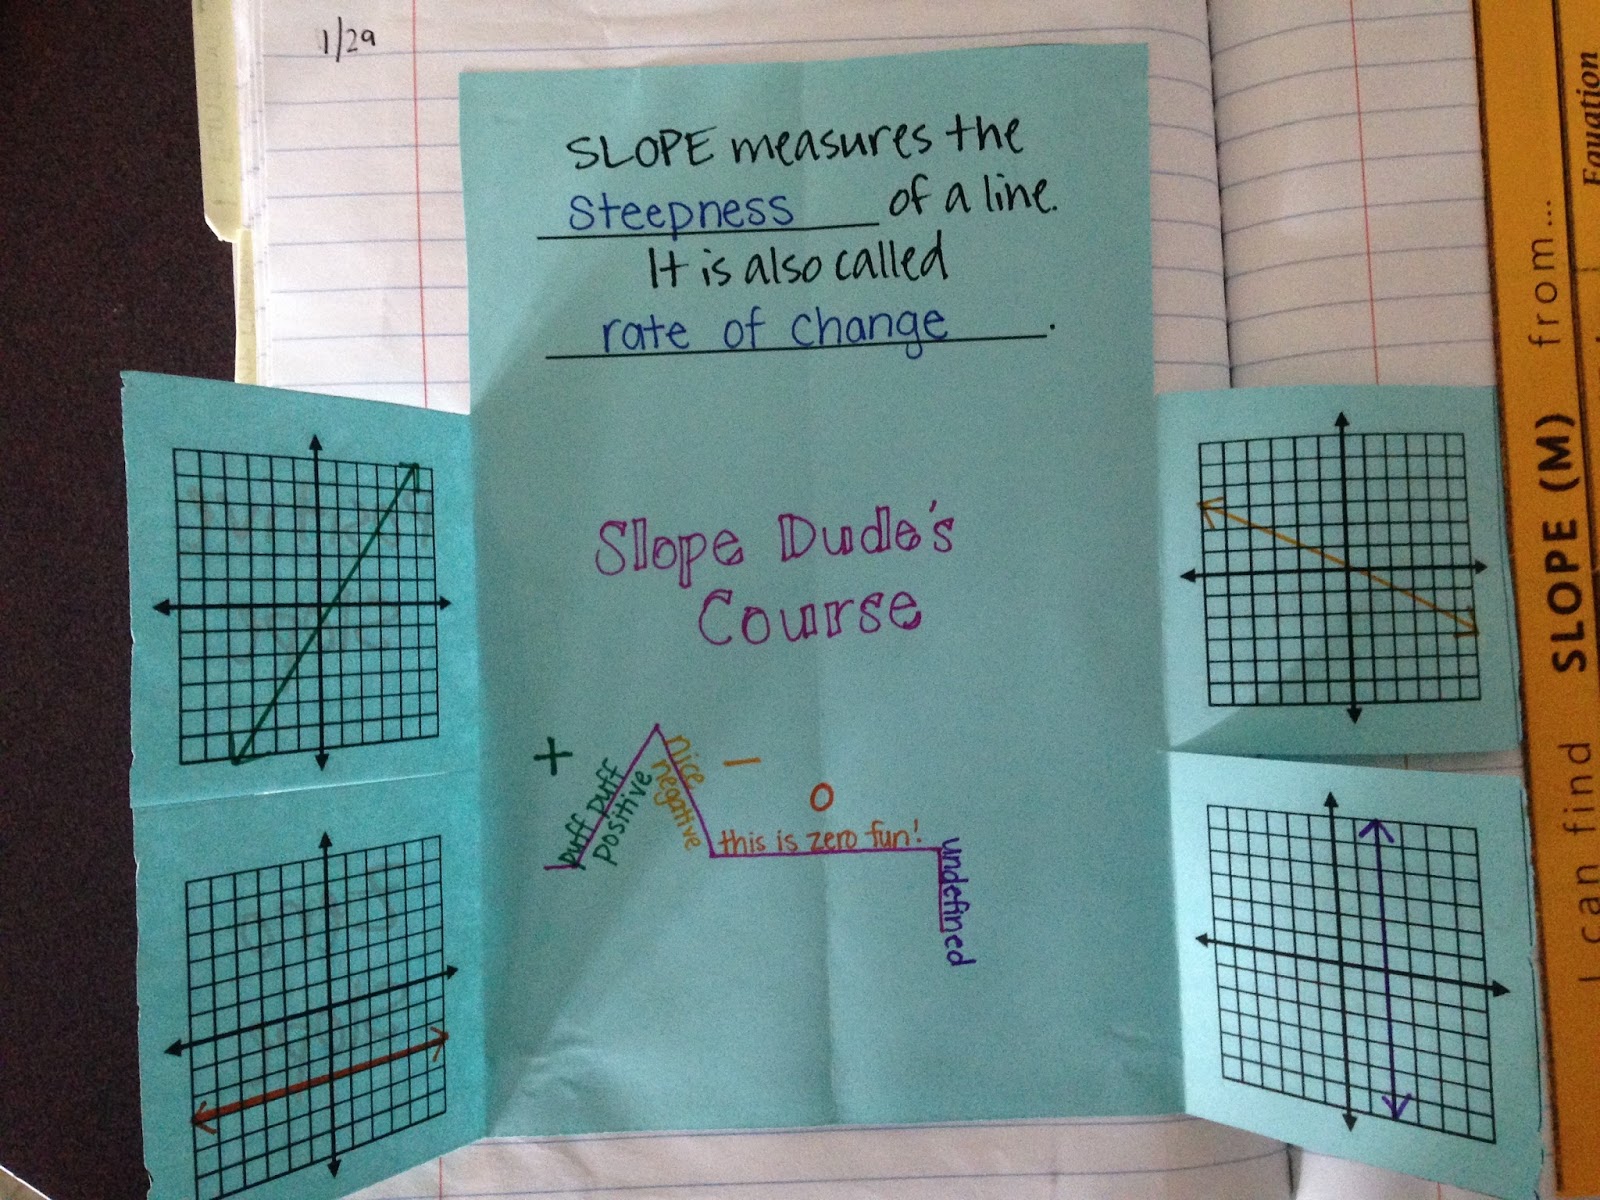 1/29
SLOPE measures the
steepness of a line.
It is also called
rate of change.
Slope Dude's
Course
+
puff puff
positive
nice
negative
−
0
this is zero fun!
undefined
I can find SLOPE (M) from...
Equation